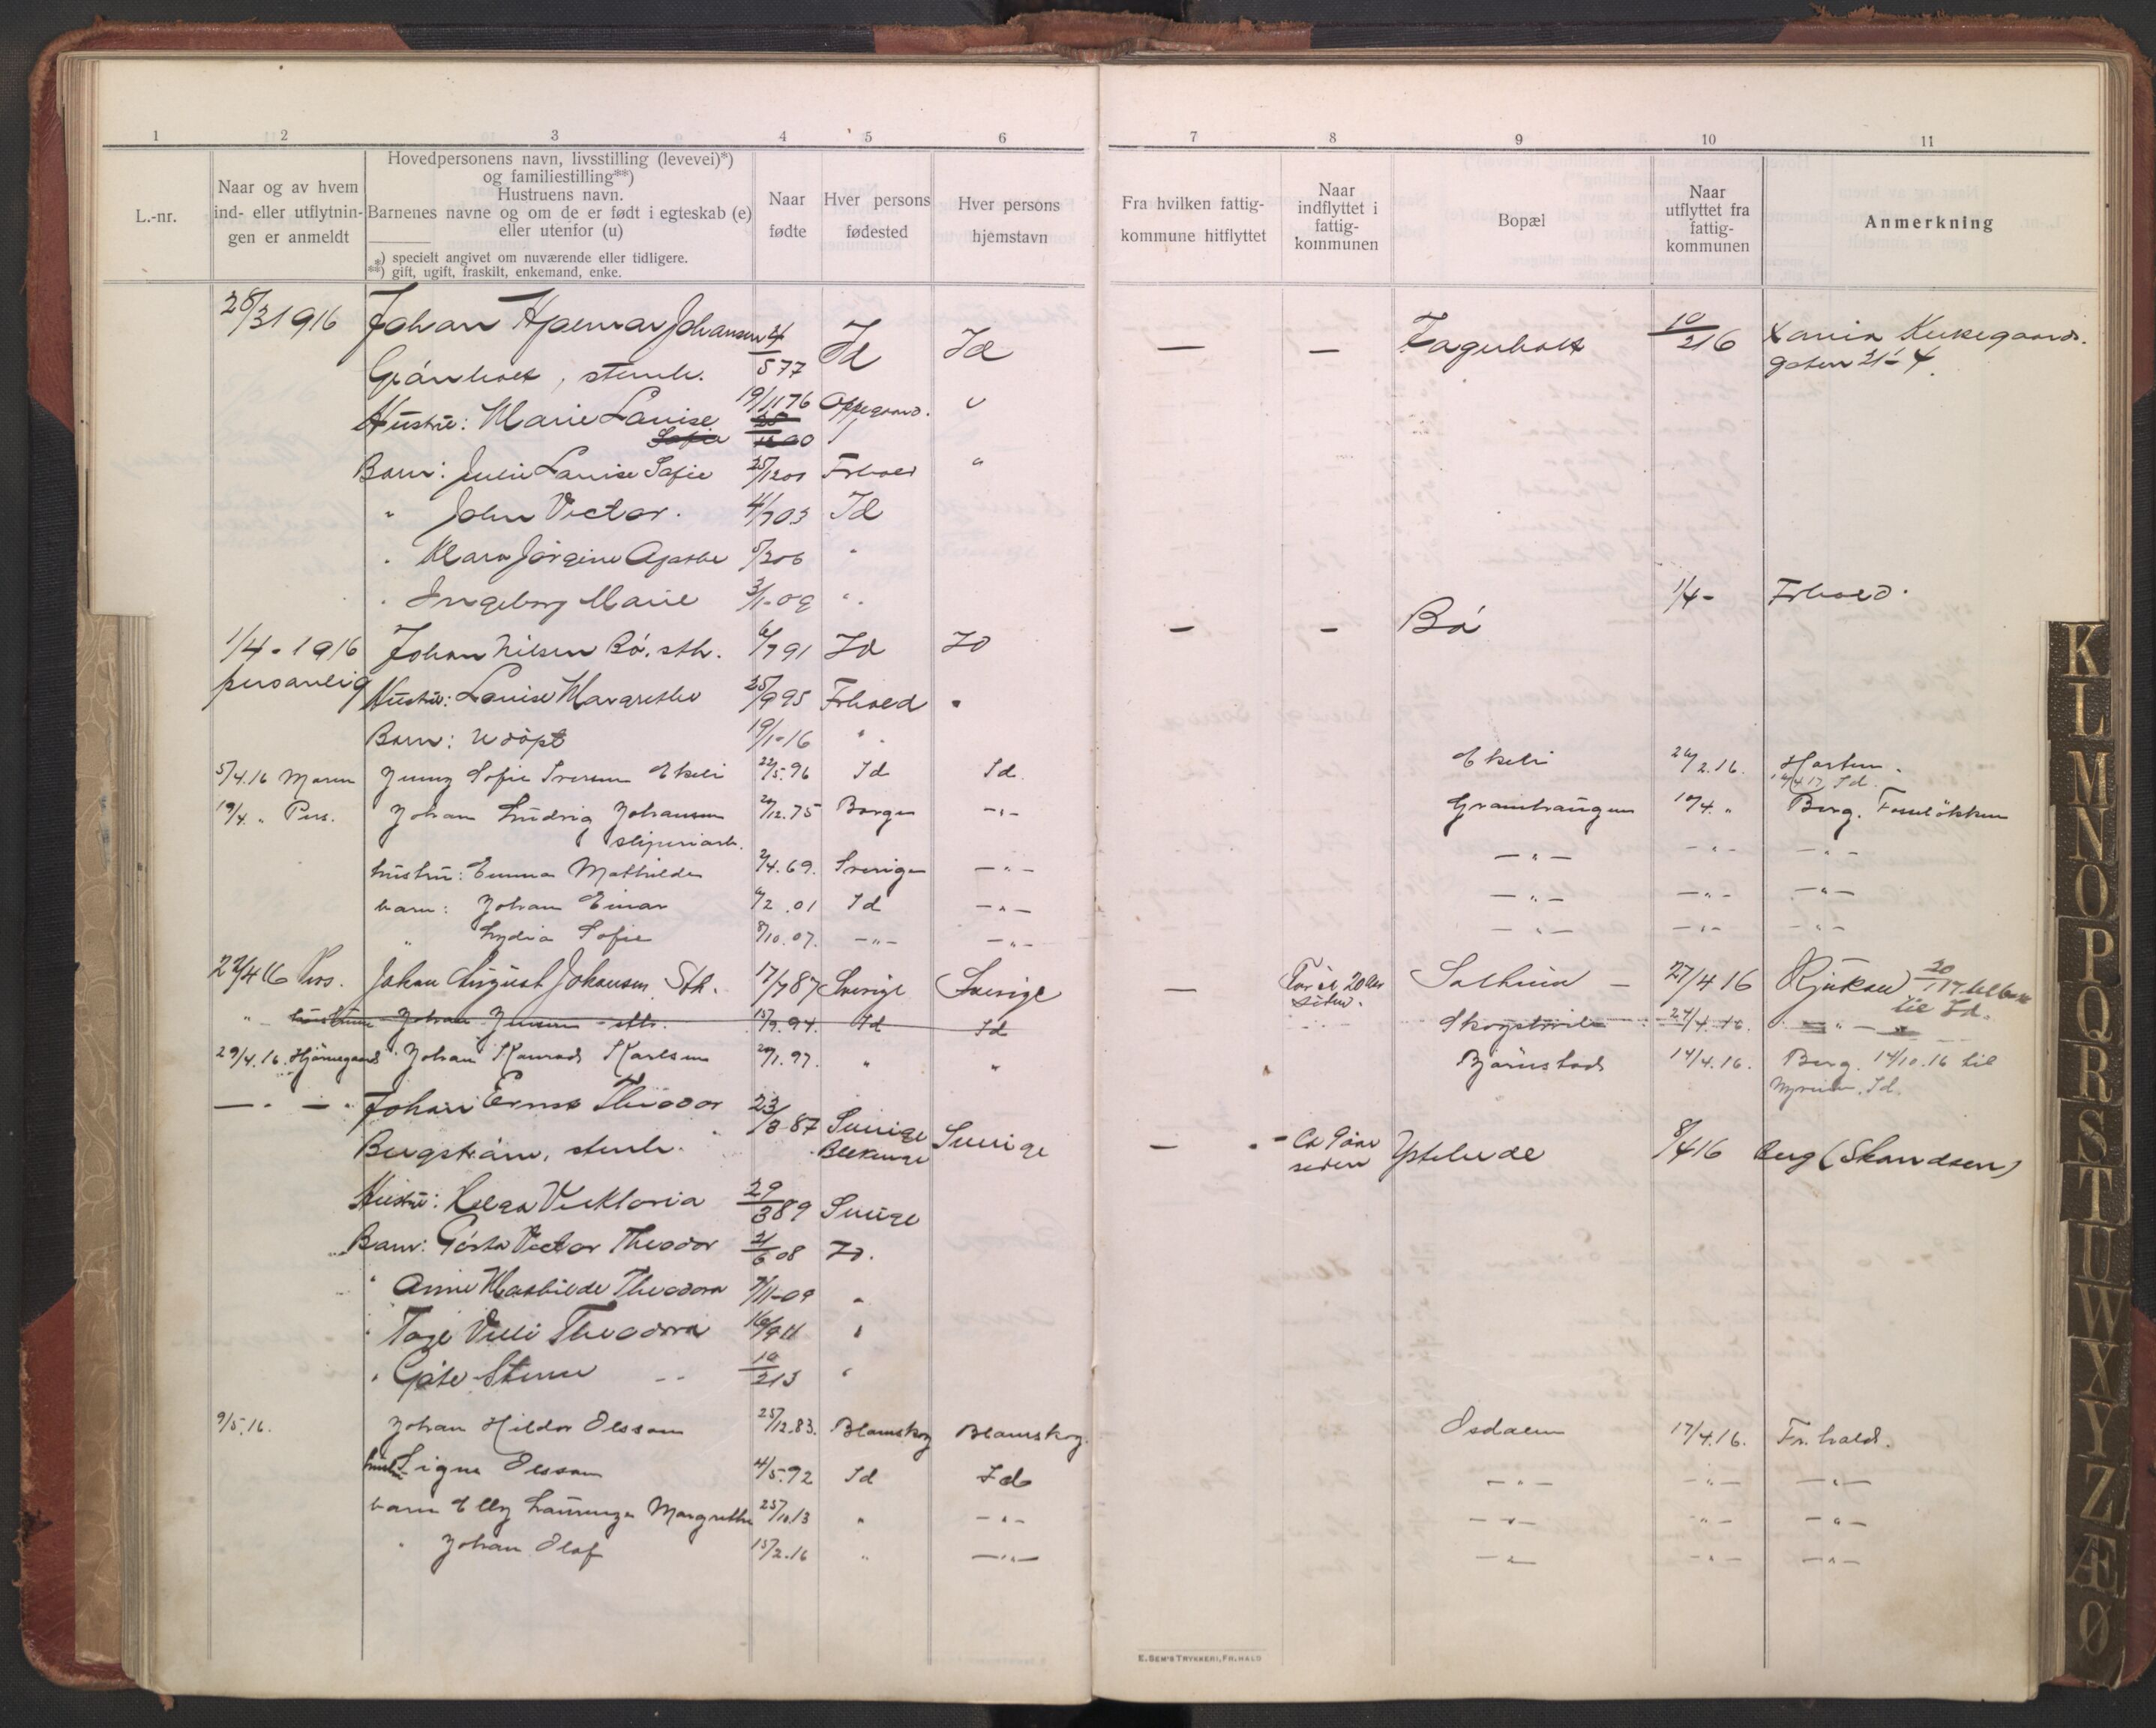 1 2 3 4 5 6 7 8 9 10 11
L.-nr.
Naar og av hvem
ind- eller utflytnin-
gen er anmeldt
Hovedpersonens navn, livsstilling (levevei)*)
og familiestilling**)
Hustruens navn.
Barnenes navne og om de er født i egteskab (e)
eller utenfor (u)
*) specielt angivet om nuværende eller tidligere.
**) gift, ugift, fraskilt, enkemand, enke.
Naar
fødte
Hver persons
fødested
Hver persons
hjemstavn
Fra hvilken fattig-
kommune hitflyttet
Naar
indflyttet i
fattig-
kommunen
Bopæl
Naar
utflyttet fra
fattig-
kommunen
Anmerkning
28/3 1916 Johan Hjalmar Johansen 24/5 77 Id Id — — Fagerholt 10/2 16
gaten 21-4
Grönholt, stenh.
Hustru: Marie Louise 19/11 76 Oppegaard "
Sofie
Barn: Julie Louise Sofie 25/12 00 Frhald "
" John Victor. 4/7 03 Id
" Klara Jörgine Agathe 5/3 06 "
" Ingeborg Marie 3/1-09 "
1/4-1916 Johan Nilsen Bö. sth. 6/7 91 Id Id — — Bö 1/4- Frhald.
personlig Hustru: Louise Margrethe 25/9 95 Frhald "
Barn: Udöpt 19/1-16 "
5/4.16 Maren Jenny Sofie Iversen Ekeli 22/5.96 Id Id. Ekeli 26/2.16. Horten.
14/4 17 Id.
19/4. " Pers. Johan Ludvig Johansen 20/12.75 Borge —"— Gramhaugen 10/4. " Berg.
sliperiarb.
hustru: Emma Mathilde 2/4.69. Sverige —"— —"— —"— —"—
barn: Johan Einar 6/2.01 Id —"— —"— —"— —"—
" Lydia Sofie 8/10.07. —"— —"— —"— —"— —"—
22/4 16 Pers. Johan August Johansen Sth. 17/7 87 Sverige Sverige — For et 20 Aar Solheim — 27/4 16 Rjukan
siden. til Id.
" Johan Jensen sth. 15/9.94. Id Id 27/4.16.
29/4.16. Johan Konrad Karlsen 20/1.97. " " Bjørnstad 14/4.16. Berg. 14/10.16 til
Id.
—"— Johan Ernst Theodor 23/3 87 Sverige Sverige — Ca 9 aar Ystehede 8/4 16 Berg (Skandsen)
Bergström, stenh. Blekinge siden
Hustru: Helga Viktoria 29/3 89 Sverige
Barn: Gösta Victor Theodor 21/6 08 Id.
" Anne Mathilde Theodora 7/11-09 "
" Tage Villi Theodora 16/9 11 "
" Göte Stener 10/2 13 "
9/5.16. Johan Hildor Olsson 25/12.83. Blomskog Blomskog. Isdalen 17/4.16. Fr.hald.
hustru Signe Olsson 4/5.92 Id Id —"— —"— —"—
barn Elly Laurenze Margrethe 25/10.13 " —"— —"— —"— —"—
" Johan Olaf 15/2.16 " —"— —"— —"— —"—
E. SEM'S TRYKKERI, FR.HALD
K
L
M
N
O
P
Q
R
S
T
U
W
X
Y
Z
Æ
Ø